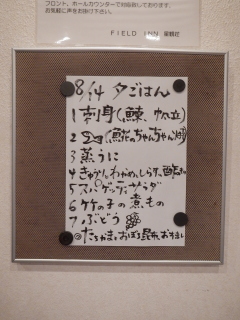 フロント、ホールカウンターで対応致しております。
お気軽に声をお掛け下さい。
FIELD INN
8/14 夕ごはん
1 刺身(鰊、帆立)
2 (鮭のちゃんちゃん焼)
3 蒸うに
4 きゅうり、わかめ、しらす、酢のもの
5 スパゲッティサラダ
6 竹の子の煮もの
7 ぶどう
◎たちかまとおぼろ昆布、おすまし